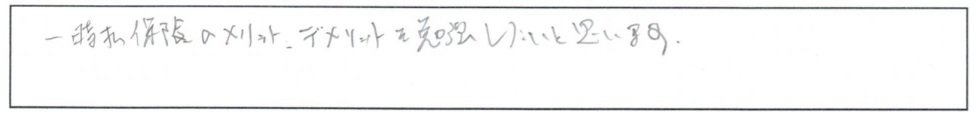 一時払保険のメリット、デメリットを勉強したいと思います。